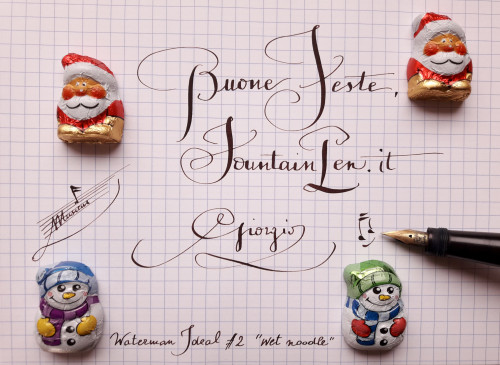 Buone Feste,
FountainPen.it
Giorgio
Waterman Ideal #2 "Wet noodle"